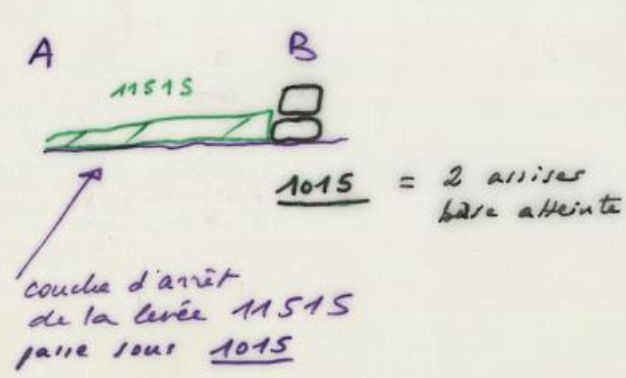 A
B
11515
1015 = 2 assises
base atteinte
couche d'arrêt
de la levée 11515
passe sous 1015